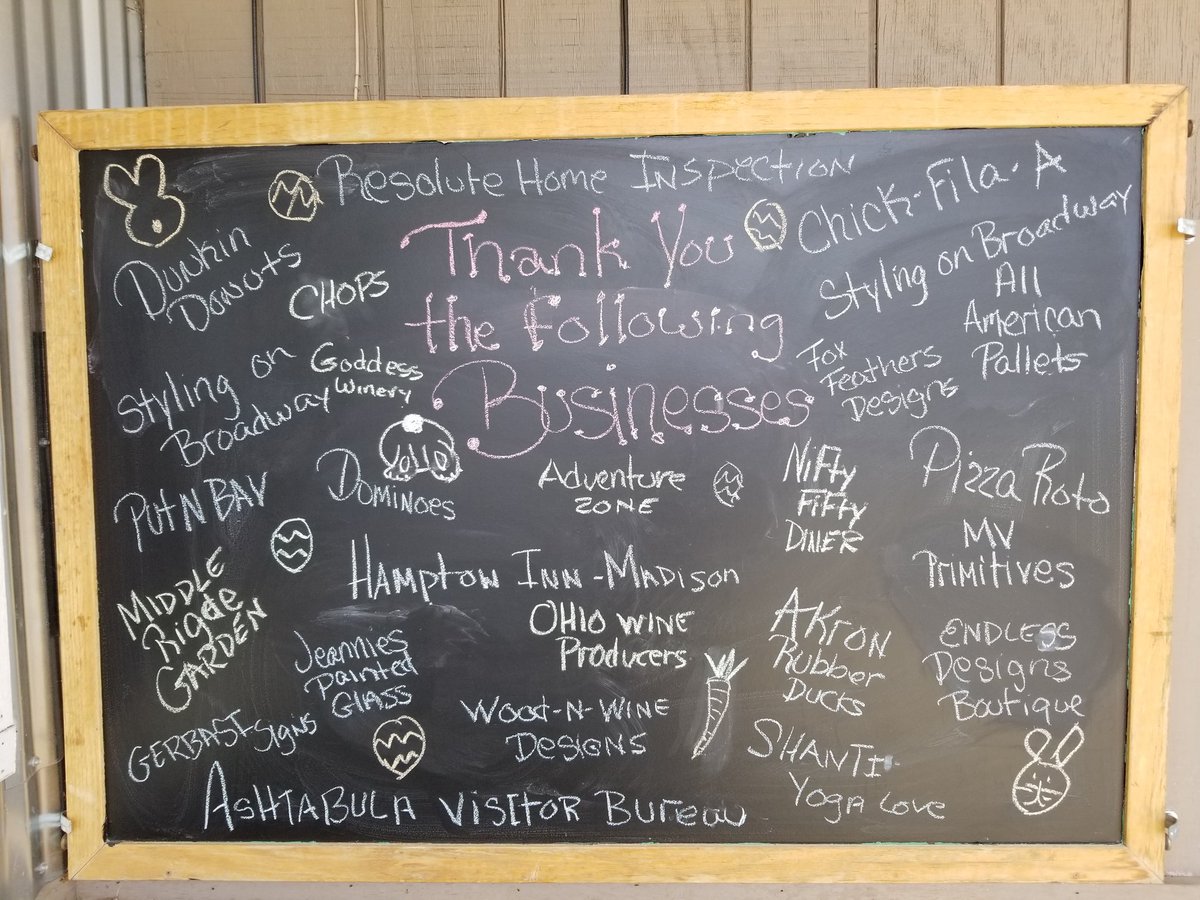 Resolute Home Inspection
Thank You
the Following
Businesses
Dunkin
Donuts
CHOPS
Chick-Fila-A
Styling on Broadway
All
American
Pallets
Styling on
Broadway
Goddess
Winery
Fox
Feathers
Designs
PUT N BAY
Dominoes
Adventure
ZONE
NiFty
FiFty
DINER
Pizza Roto
MV
Primitives
Hampton Inn - Madison
MIDDLE
Rigde
GARDEN
Jeannies
Painted
GLASS
OHIO WINE
Producers
AKRON
Rubber
Ducks
ENDLESS
Designs
Boutique
GERBAST-Signs
Wood-N-WINE
DESIGNS
SHANTI-
YOGA LOVE
ASHTABULA VISITOR Bureau